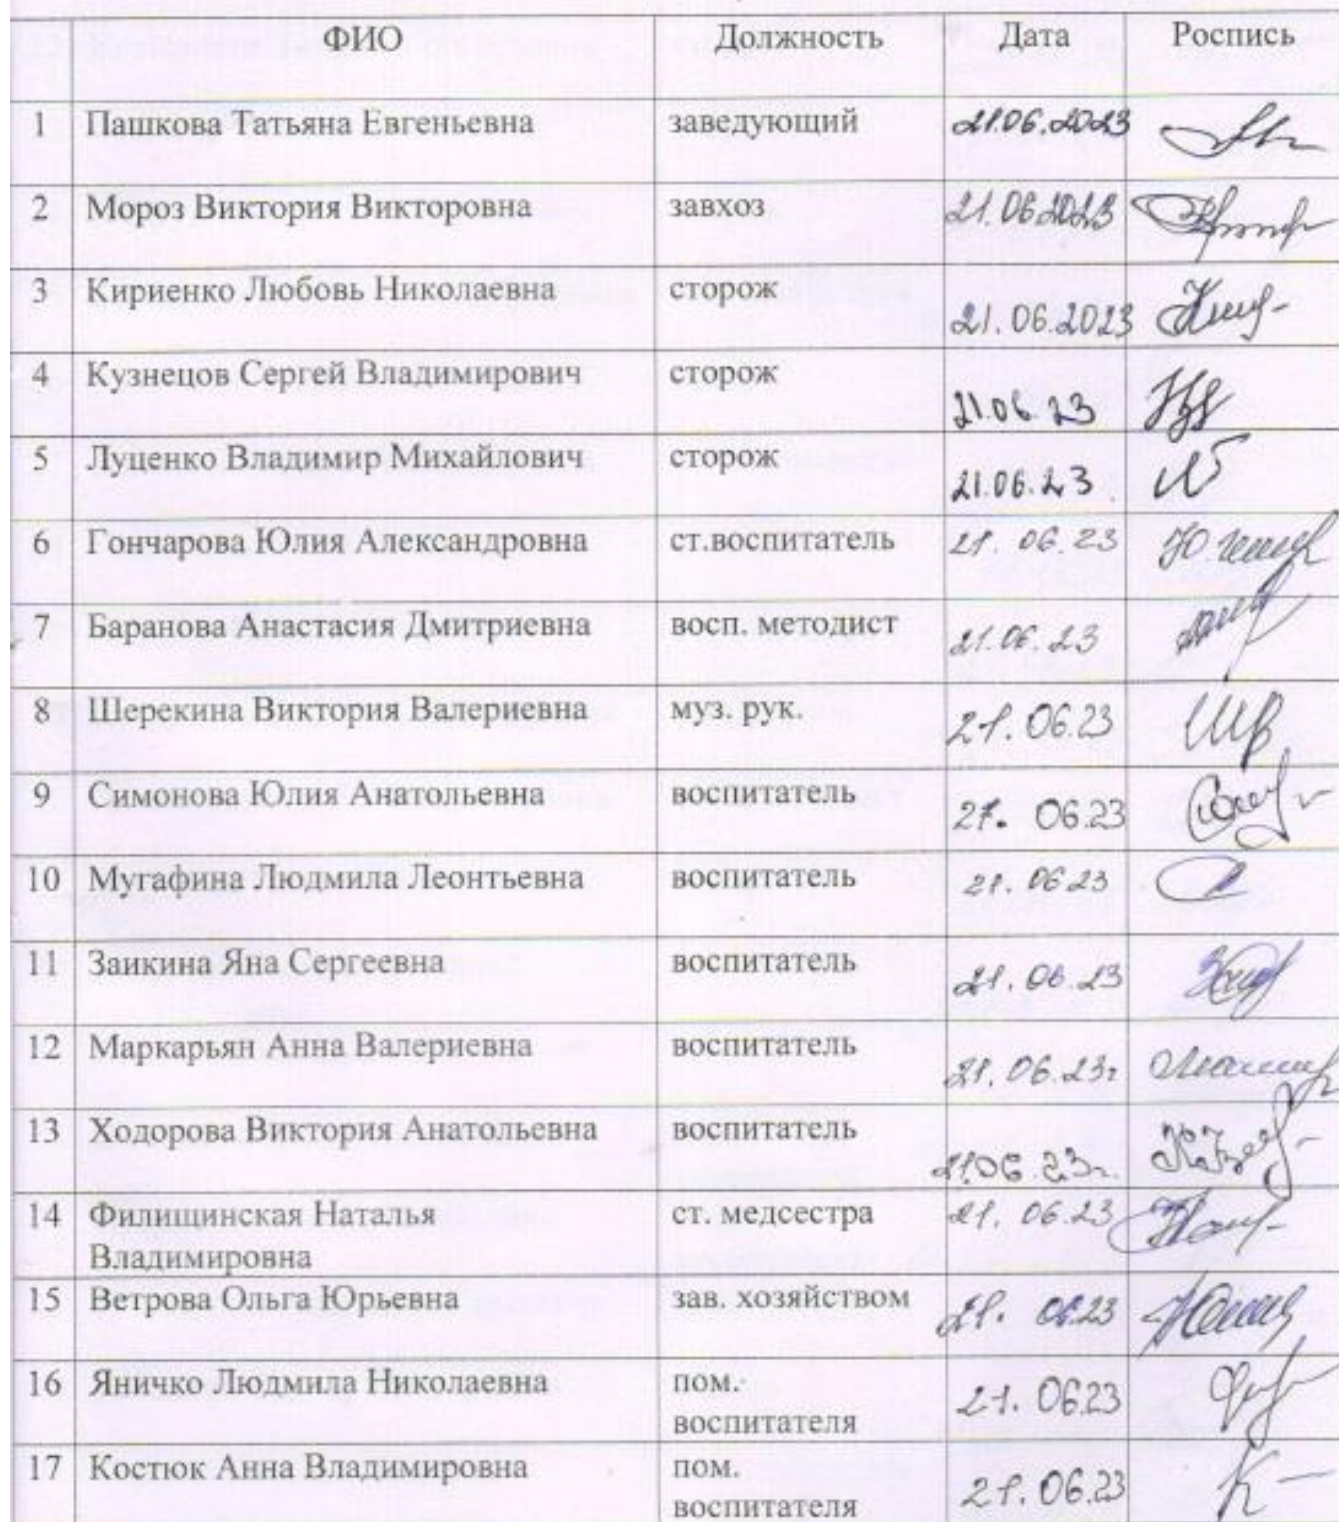 ФИО Должность Дата Роспись
1 Пашкова Татьяна Евгеньевна заведующий 21.06.2023
2 Мороз Виктория Викторовна завхоз 21.06.2023
3 Кириенко Любовь Николаевна сторож 21.06.2023
4 Кузнецов Сергей Владимирович сторож 21.06.23
5 Луценко Владимир Михайлович сторож 21.06.23
6 Гончарова Юлия Александровна ст.воспитатель 21.06.23
7 Баранова Анастасия Дмитриевна восп. методист 21.06.23
8 Шерекина Виктория Валериевна муз. рук. 21.06.23
9 Симонова Юлия Анатольевна воспитатель 21.06.23
10 Мугафина Людмила Леонтьевна воспитатель 21.06.23
11 Заикина Яна Сергеевна воспитатель 21.06.23
12 Маркарьян Анна Валериевна воспитатель 21.06.23г
13 Ходорова Виктория Анатольевна воспитатель 21.06.23г.
14 Филищинская Наталья ст. медсестра 21.06.23
Владимировна
15 Ветрова Ольга Юрьевна зав. хозяйством 21.06.23
16 Яничко Людмила Николаевна пом. 21.06.23
воспитателя
17 Костюк Анна Владимировна пом. 21.06.23
воспитателя